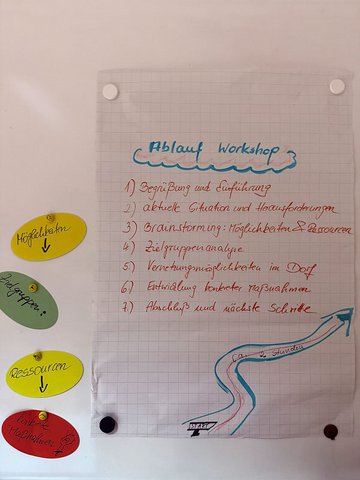 Ablauf Workshop
1) Begrüßung und Einführung
2) aktuelle Situation und Herausforderungen
3) Brainstorming: Möglichkeiten & Ressourcen
4.) Zielgruppenanalyse
5.) Vernetzungsmöglichkeiten im Dorf
6.) Entwicklung konkreter Maßnahmen
7.) Abschluß und nächste Schritte
ca. 2 Stunden
START
Möglichkeiten
Zielgruppen
Ressourcen
Maßnahmen